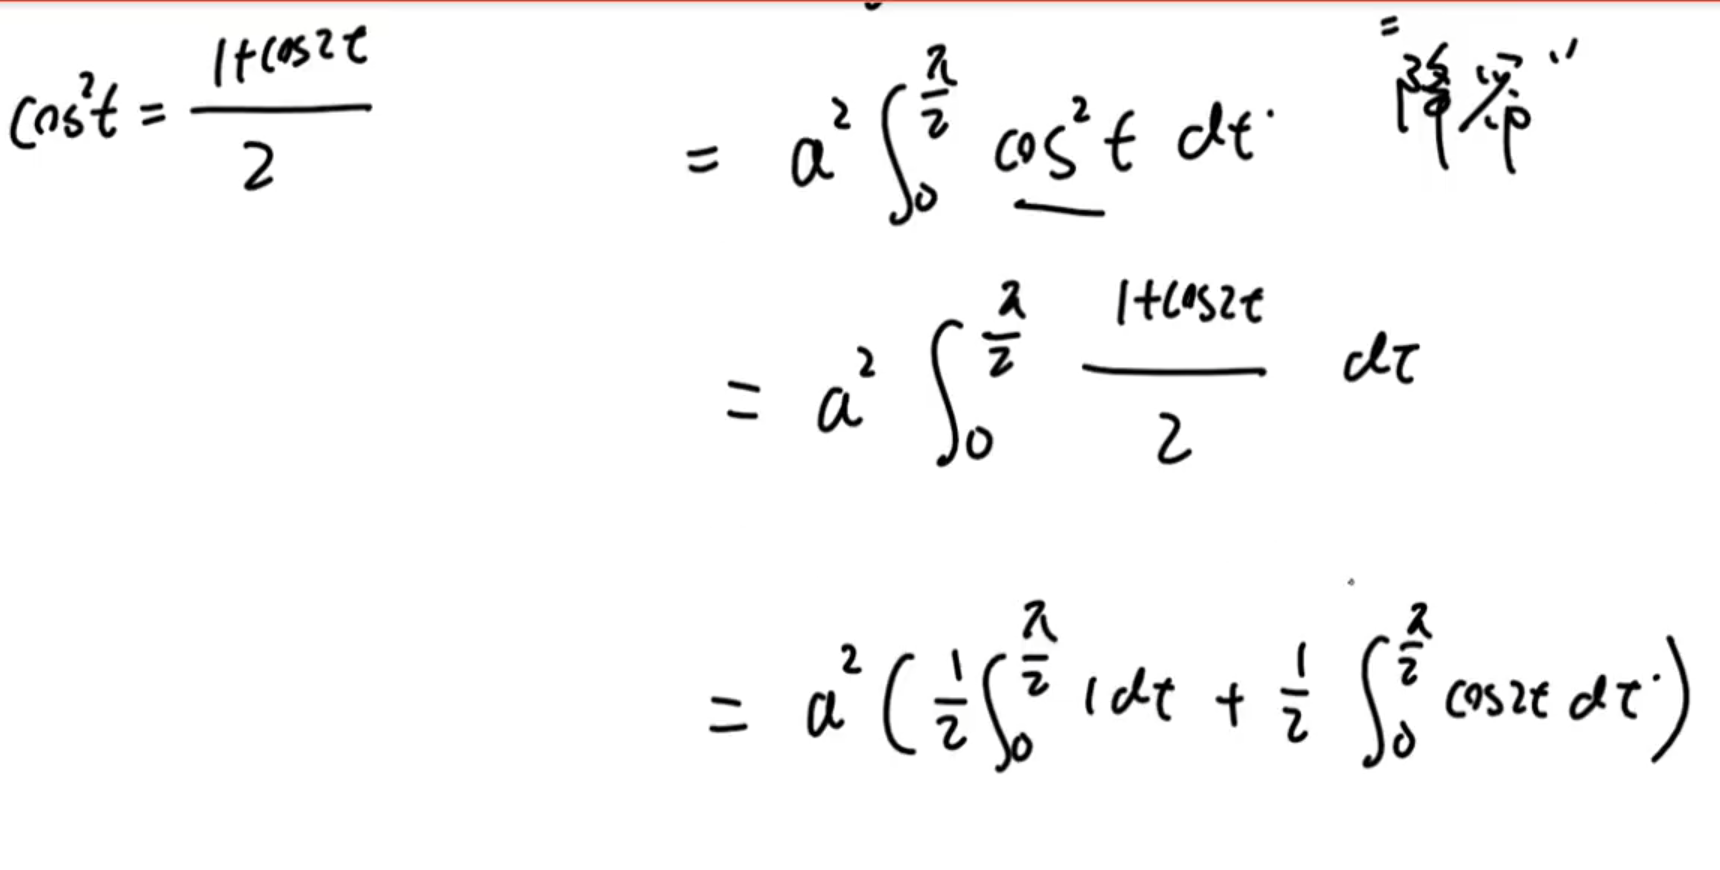 cos²t = (1+cos2t)/2
= a² ∫₀^(π/2) cos²t dt. "降幂"
= a² ∫₀^(π/2) (1+cos2t)/2 dt
= a² (1/2 ∫₀^(π/2) 1 dt + 1/2 ∫₀^(π/2) cos2t dt.)